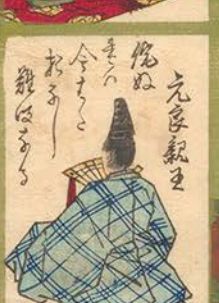 元良親王
侘ぬ
れは
今はた
おなし
難波なる